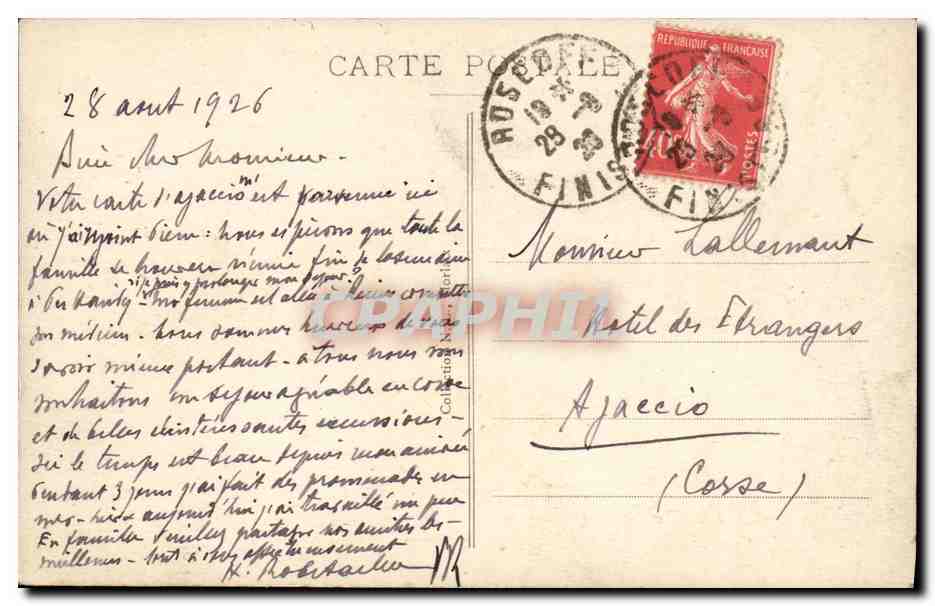 CARTE POSTALE
ROSCOFF
FINIST
REPUBLIQUE FRANÇAISE
POSTES
28 aout 1926
Votre carte d'ajaccio m'est parvenue ici
où j'ai rejoint bien : nous espérons que toute la
famille se trouvera réunie fin de la semaine
si je puis y prolonger mon séjour
ma femme est allée à consulter
son médecin - nous sommes heureux de vous
savoir mieux portant - à tous nous vous
souhaitons un séjour agréable en corse
et de belles intéressantes excursions -
Ici le temps est beau depuis mon arrivée
Pendant 3 jours j'ai fait des promenades en
mer - aujourd'hui j'ai travaillé un peu
En famille partager nos amitiés les
meilleures - tout à vous affectueusement
Collection
Monsieur Lallemant
Hotel des Etrangers
Ajaccio
(Corse)
CPAPHIL